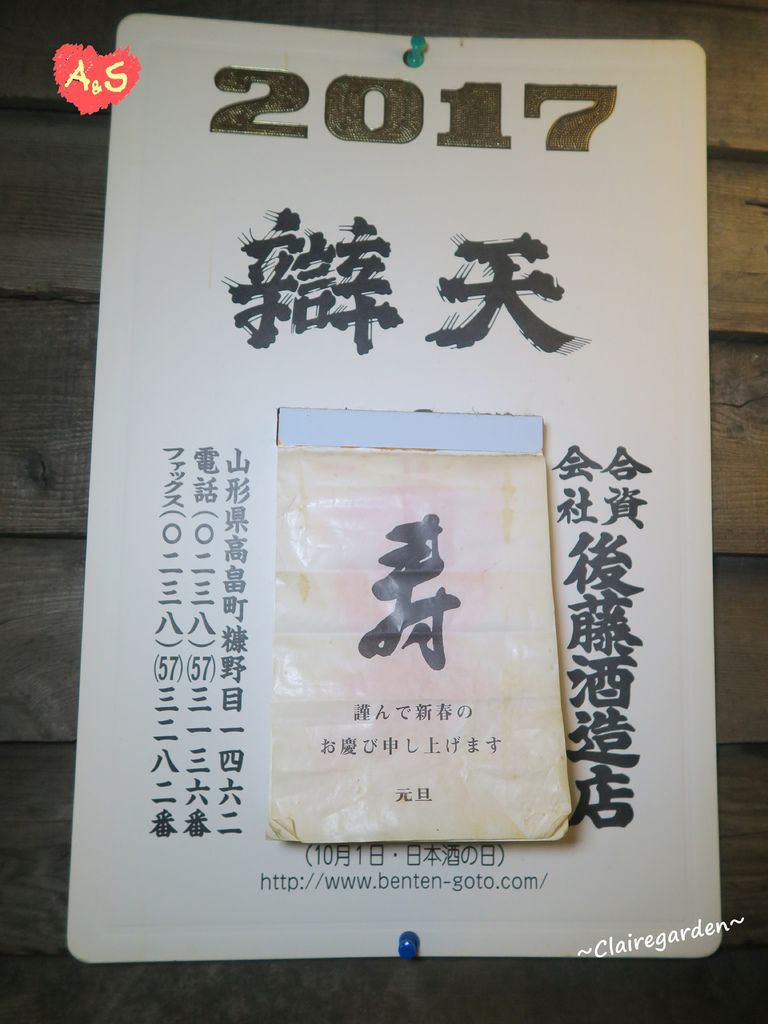 A&S
2017
辯天
合資
会社
後藤酒造店
寿
謹んで新春の
お慶び申し上げます
元旦
山形県高畠町糠野目一四六二
電話(〇二三八)(57)三一三六番
ファックス(〇二三八)(57)三二八二番
(10月1日・日本酒の日)
http://www.benten-goto.com/
~Clairegarden~